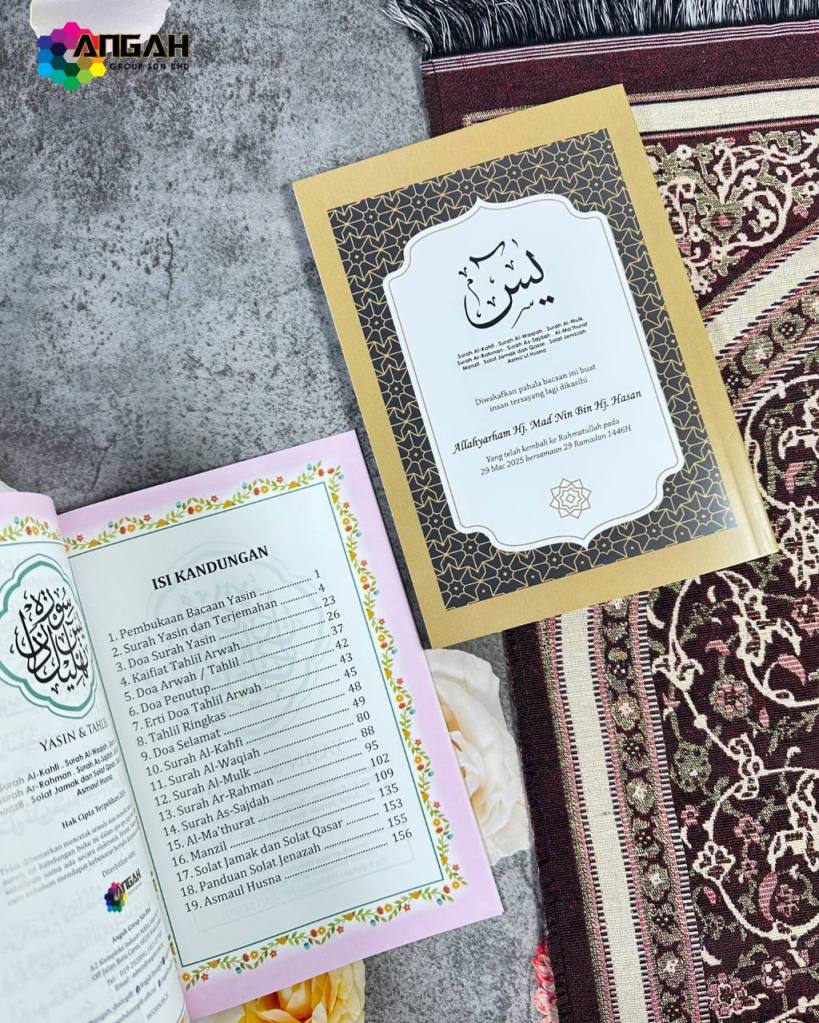 ANGAH
GROUP SDN BHD
يس
Surah Al-Kahfi . Surah Al-Waqiah . Surah Al-Mulk
Surah Ar-Rahman . Surah As-Sajdah . Al-Ma'thurat
Manzil . Solat Jamak dan Qasar . Solat Jenazah
Asma'ul Husna
Diwakafkan pahala bacaan ini buat
insan tersayang lagi dikasihi
Allahyarham Hj. Mad Nin Bin Hj. Hasan
Yang telah kembali ke Rahmatullah pada
29 Mac 2025 bersamaan 29 Ramadan 1446H
ISI KANDUNGAN
1. Pembukaan Bacaan Yasin 1
2. Surah Yasin dan Terjemahan 4
3. Doa Surah Yasin 23
4. Kaifiat Tahlil Arwah 26
5. Doa Arwah / Tahlil 37
6. Doa Penutup 42
7. Erti Doa Tahlil Arwah 43
8. Tahlil Ringkas 45
9. Doa Selamat 48
10. Surah Al-Kahfi 49
11. Surah Al-Waqiah 80
12. Surah Al-Mulk 88
13. Surah Ar-Rahman 95
14. Surah As-Sajdah 102
15. Al-Ma'thurat 109
16. Manzil 135
17. Solat Jamak dan Solat Qasar 153
18. Panduan Solat Jenazah 155
19. Asmaul Husna 156
YASIN & TAHLIL
Surah Al-Kahfi . Surah Al-Waqiah
Surah Ar-Rahman . Surah As-Sajdah
Manzil . Solat Jamak dan Solat Qasar
Asmaul Husna
Hak Cipta Terpelihara
ANGAH
Angah Group Sdn Bhd